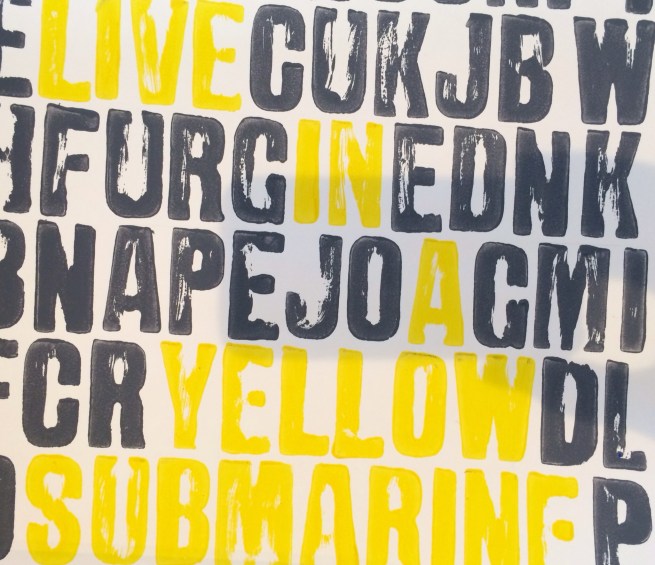 ELIVECUKJBW
HFURGINEDNK
BNAPEJOAGMI
FCRYELLOWDL
SUBMARINEP